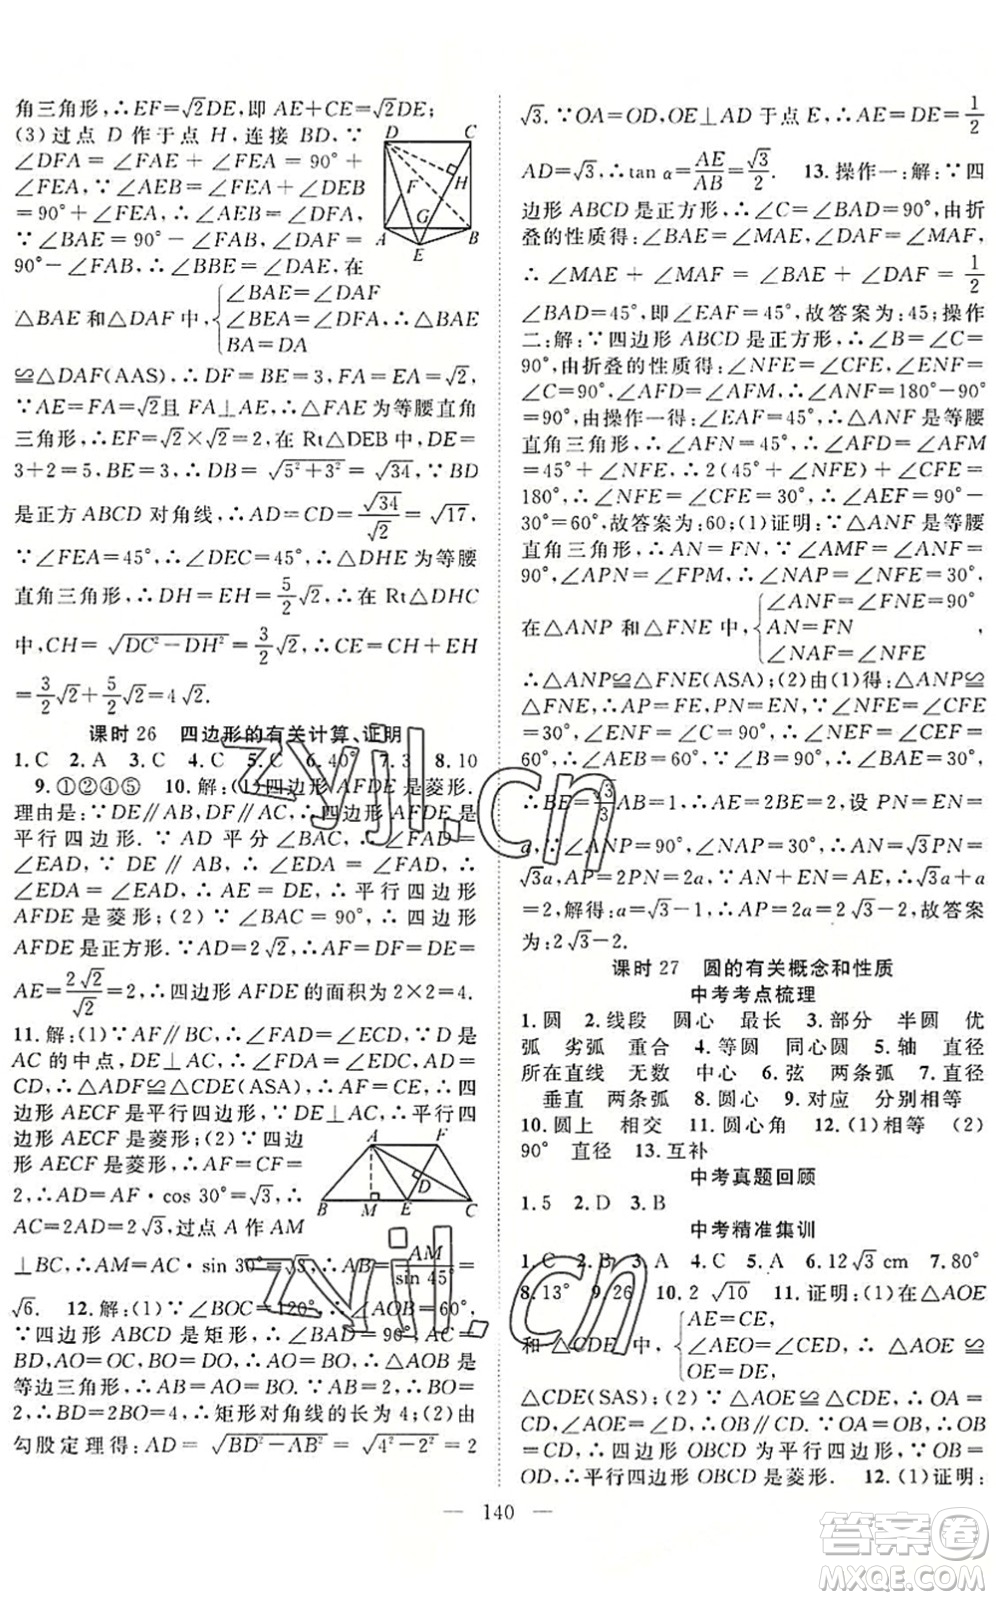 角三角形,∴EF=√2DE,即 AE+CE=√2DE;
(3)过点 D 作于点 H,连接 BD.∵
∠DFA=∠FAE+∠FEA=90°+
∠FEA,∠DEB=∠AEB+∠DEB
=90°+∠FEA,∴∠AEB=∠DFA,
∵∠BAE=90°-∠FAB,∠DAF=
90°-∠FAB,∴∠BBE=∠DAE,在
△BAE 和△DAF 中,{∠BAE=∠DAF
∠BEA=∠DFA,∴△BAE
BA=DA
≌△DAF(AAS),∴DF=BE=3,FA=EA=√2,
∵AE=FA=√2且 FA⊥AE,∴△FAE 为等腰直角
三角形,∴EF=√2×√2=2,在 Rt△DEB 中,DE=
3+2=5.BE=3,∴DB=√(5²+3²)=√34,∵BD
是正方 ABCD 对角线,∴AD=CD=√34/√2=√17,
∵∠FEA=45°,∴∠DEC=45°,∴△DHE 为等腰
直角三角形,∴DH=EH=5/2√2,∴在 Rt△DHC
中,CH=√(DC²-DH²)=3/2√2,∴CE=CH+EH
=3/2√2+5/2√2=4√2.
课时 26 四边形的有关计算、证明
1.C 2.A 3.C 4.C 5.C 6.40° 7.3 8.10
9.①②④⑤ 10.解:(1)四边形 AFDE 是菱形.
理由是:∵DE∥AB,DF∥AC,∴四边形 AFDE 是
平行四边形.∵AD 平分∠BAC,∴∠FAD=
∠EAD,∵DE∥AB,∴∠EDA=∠FAD.∴
∠EDA=∠EAD,∴AE=DE,∴平行四边形
AFDE 是菱形;(2)∵∠BAC=90°,∴四边形
AFDE 是正方形.∵AD=2√2,∴AF=DF=DE=
AE=2√2/√2=2,∴四边形 AFDE 的面积为 2×2=4.
11.解:(1)∵AF∥BC,∴∠FAD=∠ECD,∵D 是
AC 的中点,DE⊥AC,∴∠ADF=∠CDE,AD=
CD,∴△ADF≌△CDE(ASA),∴AF=CE,∴四
边形 AECF 是平行四边形,∵DE⊥AC,∴平行四
边形 AECF 是菱形;(2)∵四边
形 AECF 是菱形,∴AF=CF=
2,∴AD=AF·cos 30°=√3,∴
AC=2AD=2√3,过点 A 作 AM
⊥BC,∴AM=AC·sin 30°=√3,∴AE=AM/sin 45°=
√6. 12.解:(1)∵∠BOC=120°,∴∠AOB=60°,
∵四边形 ABCD 是矩形,∴∠BAD=90°,AC=
BD,AO=OC,BO=DO,∴AO=BO,∴△AOB 是
等边三角形,∴AB=AO=BO.∵AB=2,∴BO=
2,∴BD=2BO=4,∴矩形对角线的长为 4;(2)由
勾股定理得:AD=√(BD²-AB²)=√(4²-2²)=2
D C F H G A B E
A F D B M E C
√3.∵OA=OD,OE⊥AD 于点 E,∴AE=DE=1/2
AD=√3,∴tan α=AE/AB=√3/2. 13.操作一:解:∵四
边形 ABCD 是正方形,∴∠C=∠BAD=90°,由折
叠的性质得:∠BAE=∠MAE,∠DAF=∠MAF,
∴∠MAE+∠MAF=∠BAE+∠DAF=1/2
∠BAD=45°,即∠EAF=45°,故答案为:45;操作
二:解:∵四边形 ABCD 是正方形,∴∠B=∠C=
90°,由折叠的性质得:∠NFE=∠CFE,∠ENF=
∠C=90°,∠AFD=∠AFM,∴∠ANF=180°-90°
=90°,由操作一得:∠EAF=45°,∴△ANF 是等腰
直角三角形,∴∠AFN=45°,∴∠AFD=∠AFM
=45°+∠NFE,∴2(45°+∠NFE)+∠CFE=
180°,∴∠NFE=∠CFE=30°,∴∠AEF=90°-
30°=60°,故答案为:60;(1)证明:∵△ANF 是等腰
直角三角形,∴AN=FN,∵∠AMF=∠ANF=
90°,∠APN=∠FPM,∴∠NAP=∠NFE=30°,
在△ANP 和△FNE 中,{∠ANF=∠FNE=90°
AN=FN ,
∠NAF=∠NFE
∴△ANP≌△FNE(ASA);(2)由(1)得:△ANP
≌△FNE,∴AP=FE,PN=EN,∵∠NFE=
∠CFE=30°,∠ENF=∠C=90°,∴∠NEF=
∠CEF=60°,∴∠AEB=60°,∵∠B=90°,∴∠BAE=30°,
∴BE=√3/3AB=1,∴AE=2BE=2,设 PN=EN=
a,∵∠ANP=90°,∠NAP=30°,∴AN=√3PN=
√3a,AP=2PN=2a,∵AN+EN=AE,∴√3a+a
=2,解得:a=√3-1,∴AP=2a=2√3-2,故答案
为:2√3-2.
课时 27 圆的有关概念和性质
中考考点梳理
1.圆 2.线段 圆心 最长 3.部分 半圆 优
弧 劣弧 重合 4.等圆 同心圆 5.轴 直径
所在直线 无数 中心 6.弦 两条弧 7.直径
垂直 两条弧 8.圆心 9.对应 分别相等
10.圆上 相交 11.圆心角 12.(1)相等 (2)
90° 直径 13.互补
中考真题回顾
1.5 2.D 3.B
中考精准集训
1.C 2.B 3.A 4.C 5.A 6.12√3 cm 7.80°
8.13° 9.26 10.2√10 11.证明:(1)在△AOE
和△CDE 中,{AE=CE,
∠AEO=∠CED,∴△AOE≌
OE=DE,
△CDE(SAS);(2)∵△AOE≌△CDE,∴OA=
CD,∠AOE=∠D,∴OB∥CD,∵OA=OB,∴OB
=CD,∴四边形 OBCD 为平行四边形,∵OB=
OD,∴平行四边形 OBCD 是菱形. 12.(1)证明:
140
zyjl.cn
zyjl.cn
答案圈
MXQE.COM